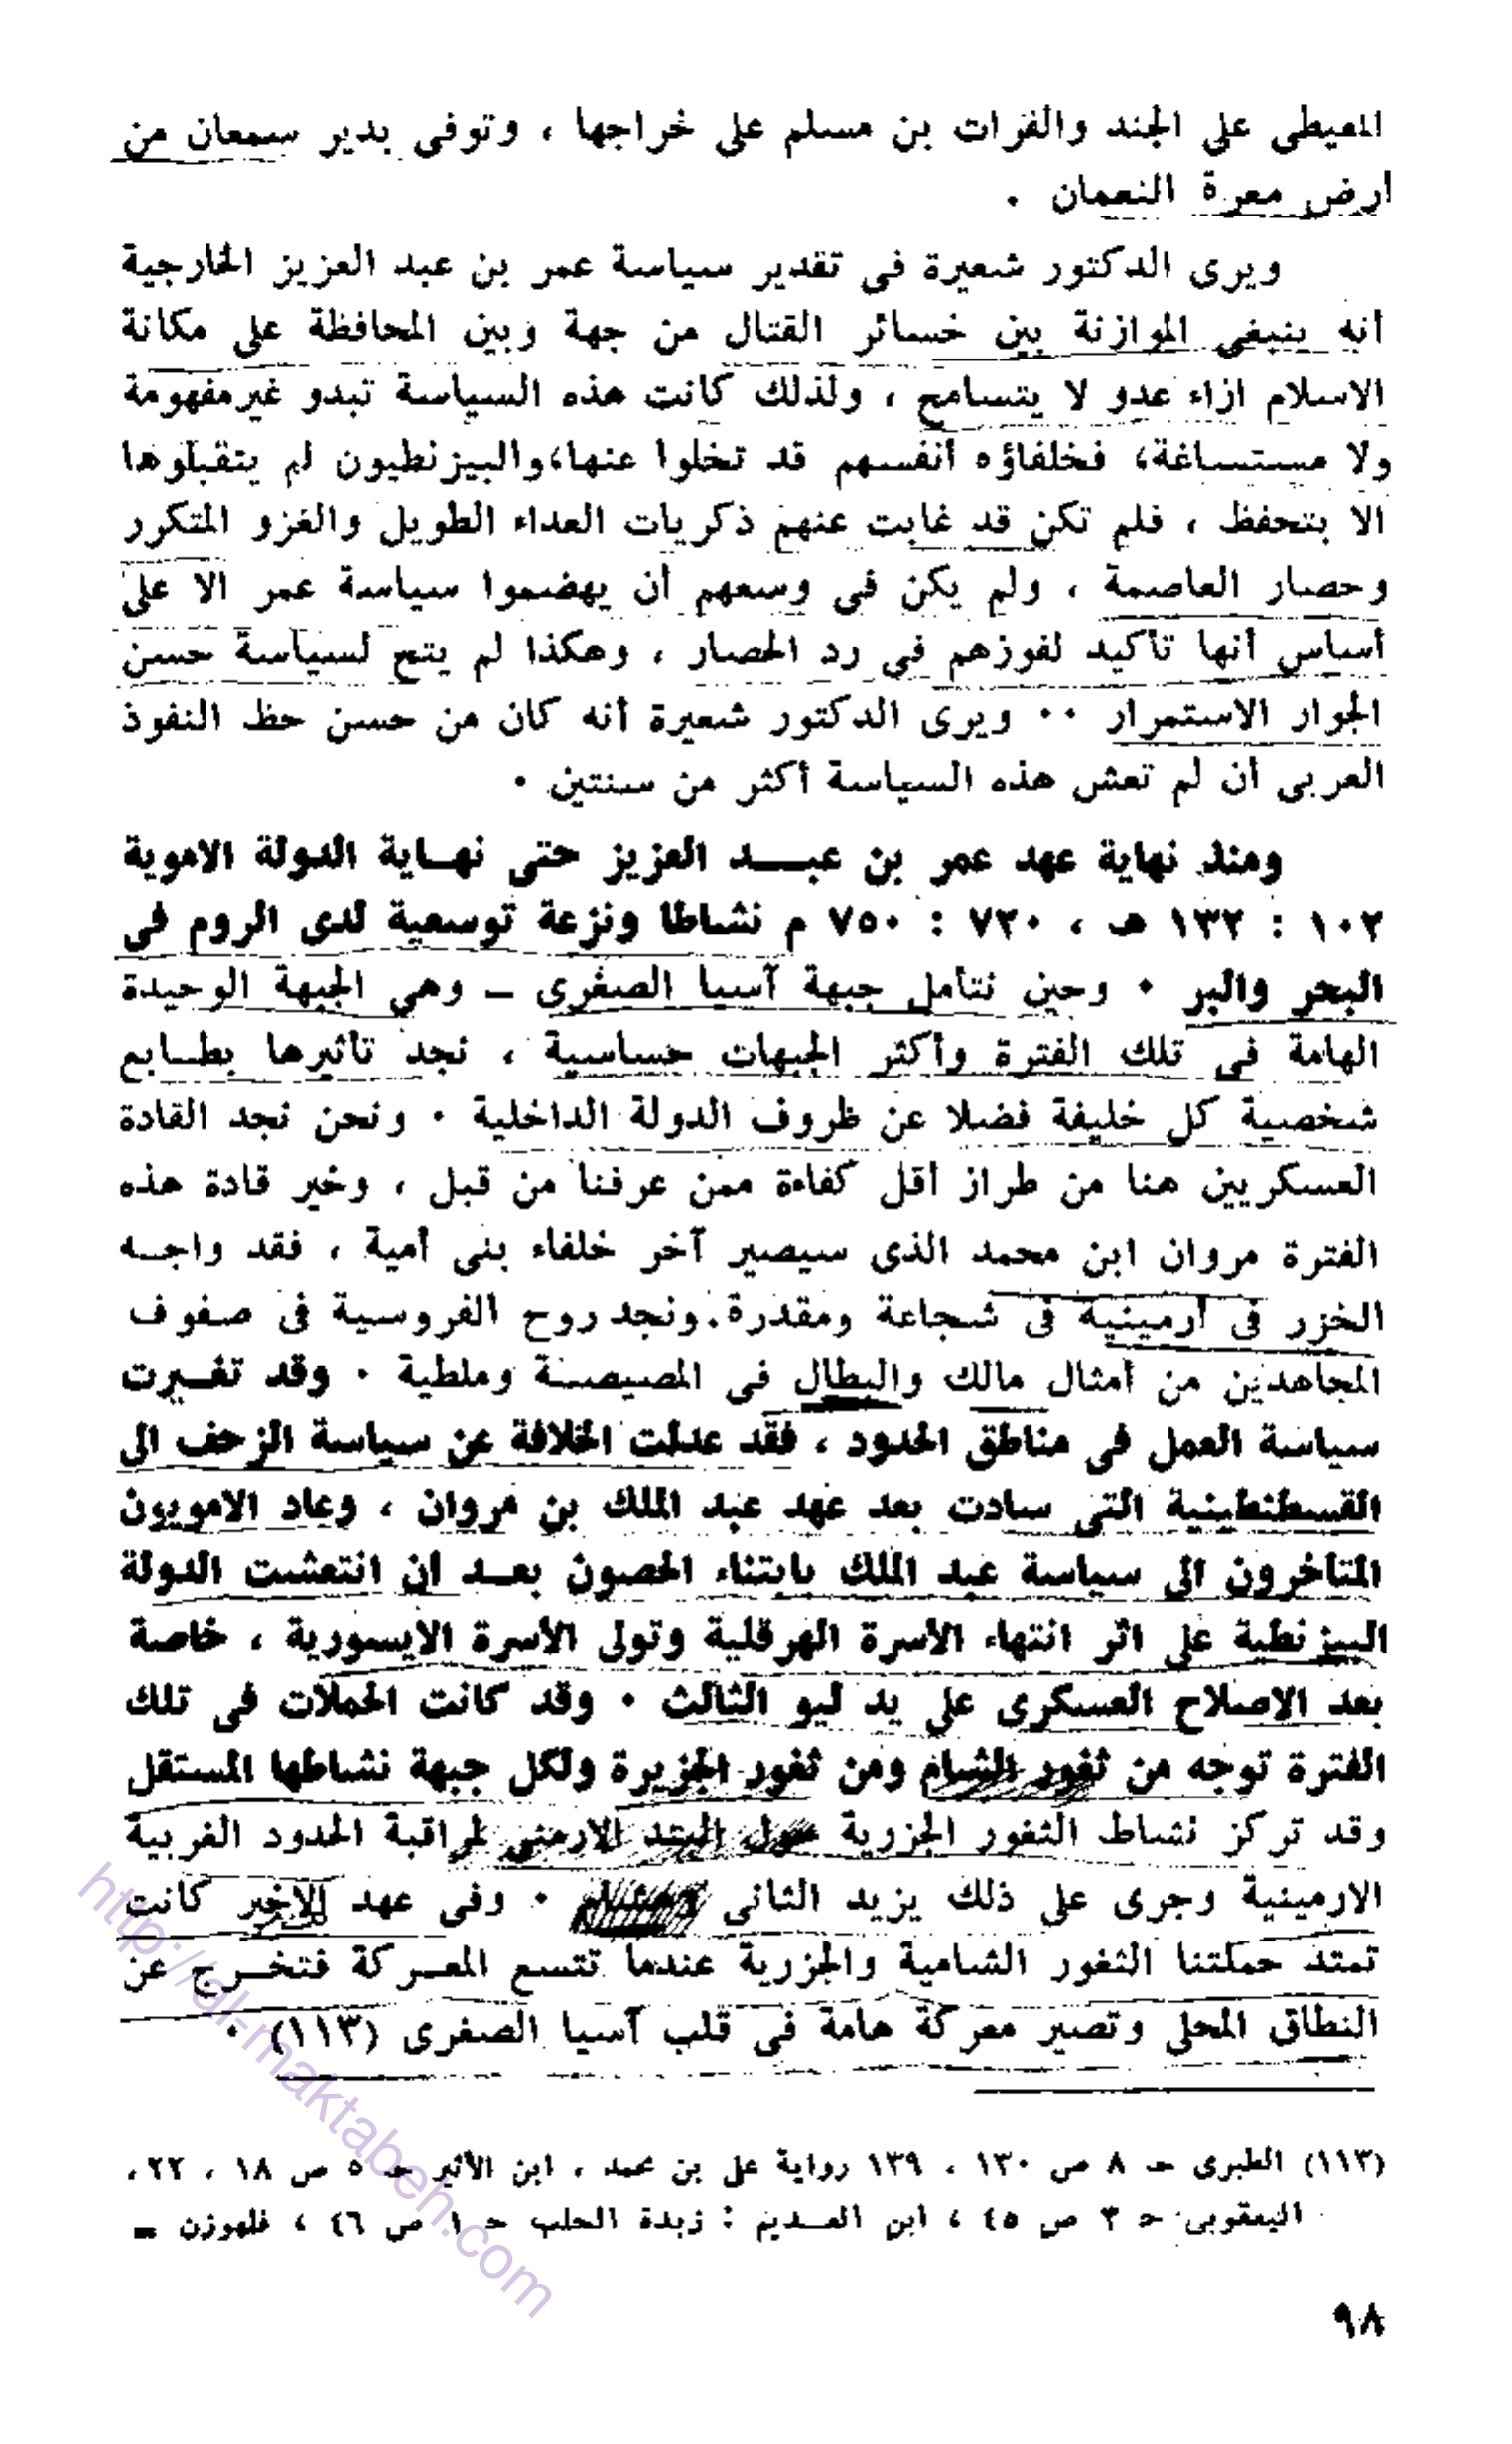 المعيطى على الجند والفرات بن مسلم على خراجها ، وتوفى بدير سمعان من
ارض معرة النعمان .
ويرى الدكتور شعيرة فى تقدير سياسة عمر بن عبد العزيز الخارجية
أنه ينبغى الموازنة بين خسائر القتال من جهة وبين المحافظة على مكانة
الاسلام ازاء عدو لا يتسامح ، ولذلك كانت هذه السياسة تبدو غير مفهومة
ولا مستساغة، فخلفاؤه أنفسهم قد تخلوا عنها، والبيزنطيون لم يتقبلوها
الا بتحفظ ، فلم تكن قد غابت عنهم ذكريات العداء الطويل والغزو المتكرر
وحصار العاصمة ، ولم يكن فى وسعهم أن يهضموا سياسة عمر الا على
أساس أنها تأكيد لفوزهم فى رد الحصار ، وهكذا لم يتح لسياسة حسن
الجوار الاستمرار ٠٠ ويرى الدكتور شعيرة أنه كان من حسن حظ النفوذ
العربى أن لم تعش هذه السياسة أكثر من سنتين .
ومنذ نهاية عهد عمر بن عبــد العزيز حتى نهـاية الدولة الاموية
١٠٢ : ١٣٢ هـ ، ٧٢٠ : ٧٥٠ م نشاطا ونزعة توسعية لدى الروم فى
البحر والبر . وحين نتأمل جبهة آسيا الصغرى – وهى الجبهة الوحيدة
الهامة فى تلك الفترة وأكثر الجبهات حساسية ، نجد تأثيرها بطـابع
شخصية كل خليفة فضلا عن ظروف الدولة الداخلية . ونحن نجد القادة
العسكريين هنا من طراز أقل كفاءة ممن عرفنا من قبل ، وخير قادة هذه
الفترة مروان ابن محمد الذى سيصير آخر خلفاء بنى أمية ، فقد واجـه
الخزر فى أرمينية فى شجاعة ومقدرة. ونجد روح الفروسية فى صفوف
المجاهدين من أمثال مالك والبطال فى المصيصة وملطية . وقد تغـيرت
سياسة العمل فى مناطق الحدود ، فقد عدلت الخلافة عن سياسة الزحف الى
القسطنطينية التى سادت بعد عهد عبد الملك بن مروان ، وعاد الامويون
المتأخرون الى سياسة عبد الملك بابتناء الحصون بعـد ان انتعشت الدولة
البيزنطية على اثر انتهاء الأسرة الهرقلية وتولى الأسرة الايسورية ، خاصة
بعد الاصلاح العسكرى على يد ليو الثالث . وقد كانت الحملات فى تلك
الفترة توجه من ثغور الشام ومن ثغور الجزيرة ولكل جبهة نشاطها المستقل
وقد تركز نشاط الثغور الجزرية الارمنى لمراقبة الحدود الغربية
الارمينية وجرى على ذلك يزيد الثانى . وفى عهد الاخير كانت
تمتد حملتنا الثغور الشامية والجزرية عندما تتسع المعـركة فتخـرج عن
النطاق المحلى وتصير معركة هامة فى قلب آسيا الصغرى (١١٣) .
(١١٣) الطبرى حـ ٨ ص ١٣٠ ، ١٣٩ رواية على بن محمد ، ابن الأثير حـ ٥ ص ١٨ ، ٢٢ ،
اليعقوبى حـ ٣ ص ٤٥ ، ابن العـديم : زبدة الحلب حـ ١ ص ٤٦ ، فلهوزن =
٩٨
http://al-maktabeh.com